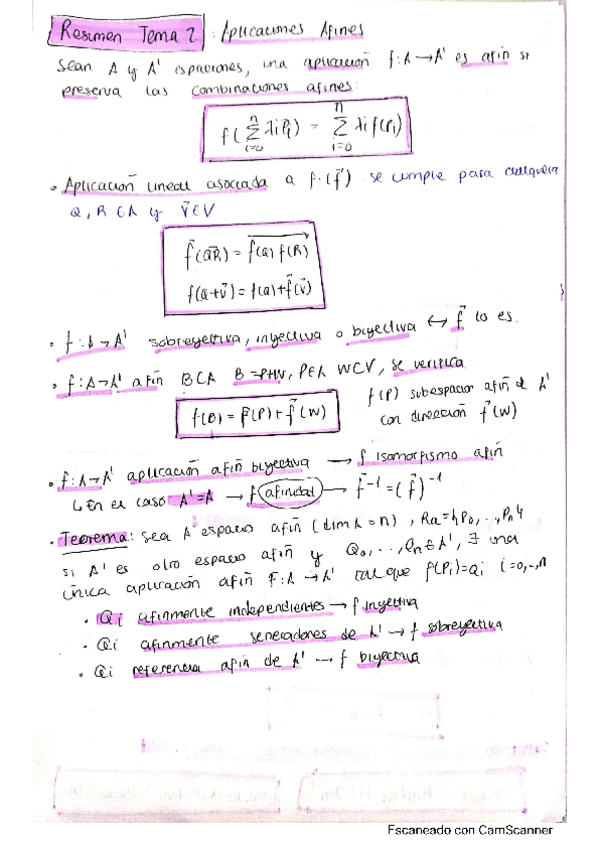 Resumen Tema 2 : Aplicaciones Afines
Sean A y A' espaciones, una aplicación f: A→A' es afín si
preserva las combinaciones afines:
f( Σ_{i=0}^{n} λiPi) = Σ_{i=0}^{n} λi f(Pi)
• Aplicación lineal asociada a f. (f⃗) se cumple para cualquiera
Q, R ∈ A y v⃗ ∈ V
f⃗(QR⃗) = f(Q) f(R)⃗
f(Q+v⃗) = f(Q)+f⃗(v⃗)
• f: A→A' sobreyectiva, inyectiva o biyectiva ↔ f⃗ lo es.
• f: A→A' afín B⊂A B=P+W, P∈A W⊂V, se verifica
f(B) = f(P) + f⃗(W)
f(P) subespacio afín de A'
con dirección f⃗(W)
• f: A→A' aplicación afín biyectiva → f isomorfismo afín
↳ En el caso A'=A → f afinidad → f⃗⁻¹ = (f⃗)⁻¹
• Teorema: sea A espacio afín (dim A = n), Ra = {P0, .., Pn}
si A' es otro espacio afín y Q0, .., Qn ∈ A', ∃ una
única aplicación afín F: A → A' tal que f(Pi)=Qi i=0,..,n
• Qi afinmente independientes → f inyectiva
• Qi afinmente generadores de A' → f sobreyectiva
• Qi referencia afín de A' → f biyectiva
Escaneado con CamScanner